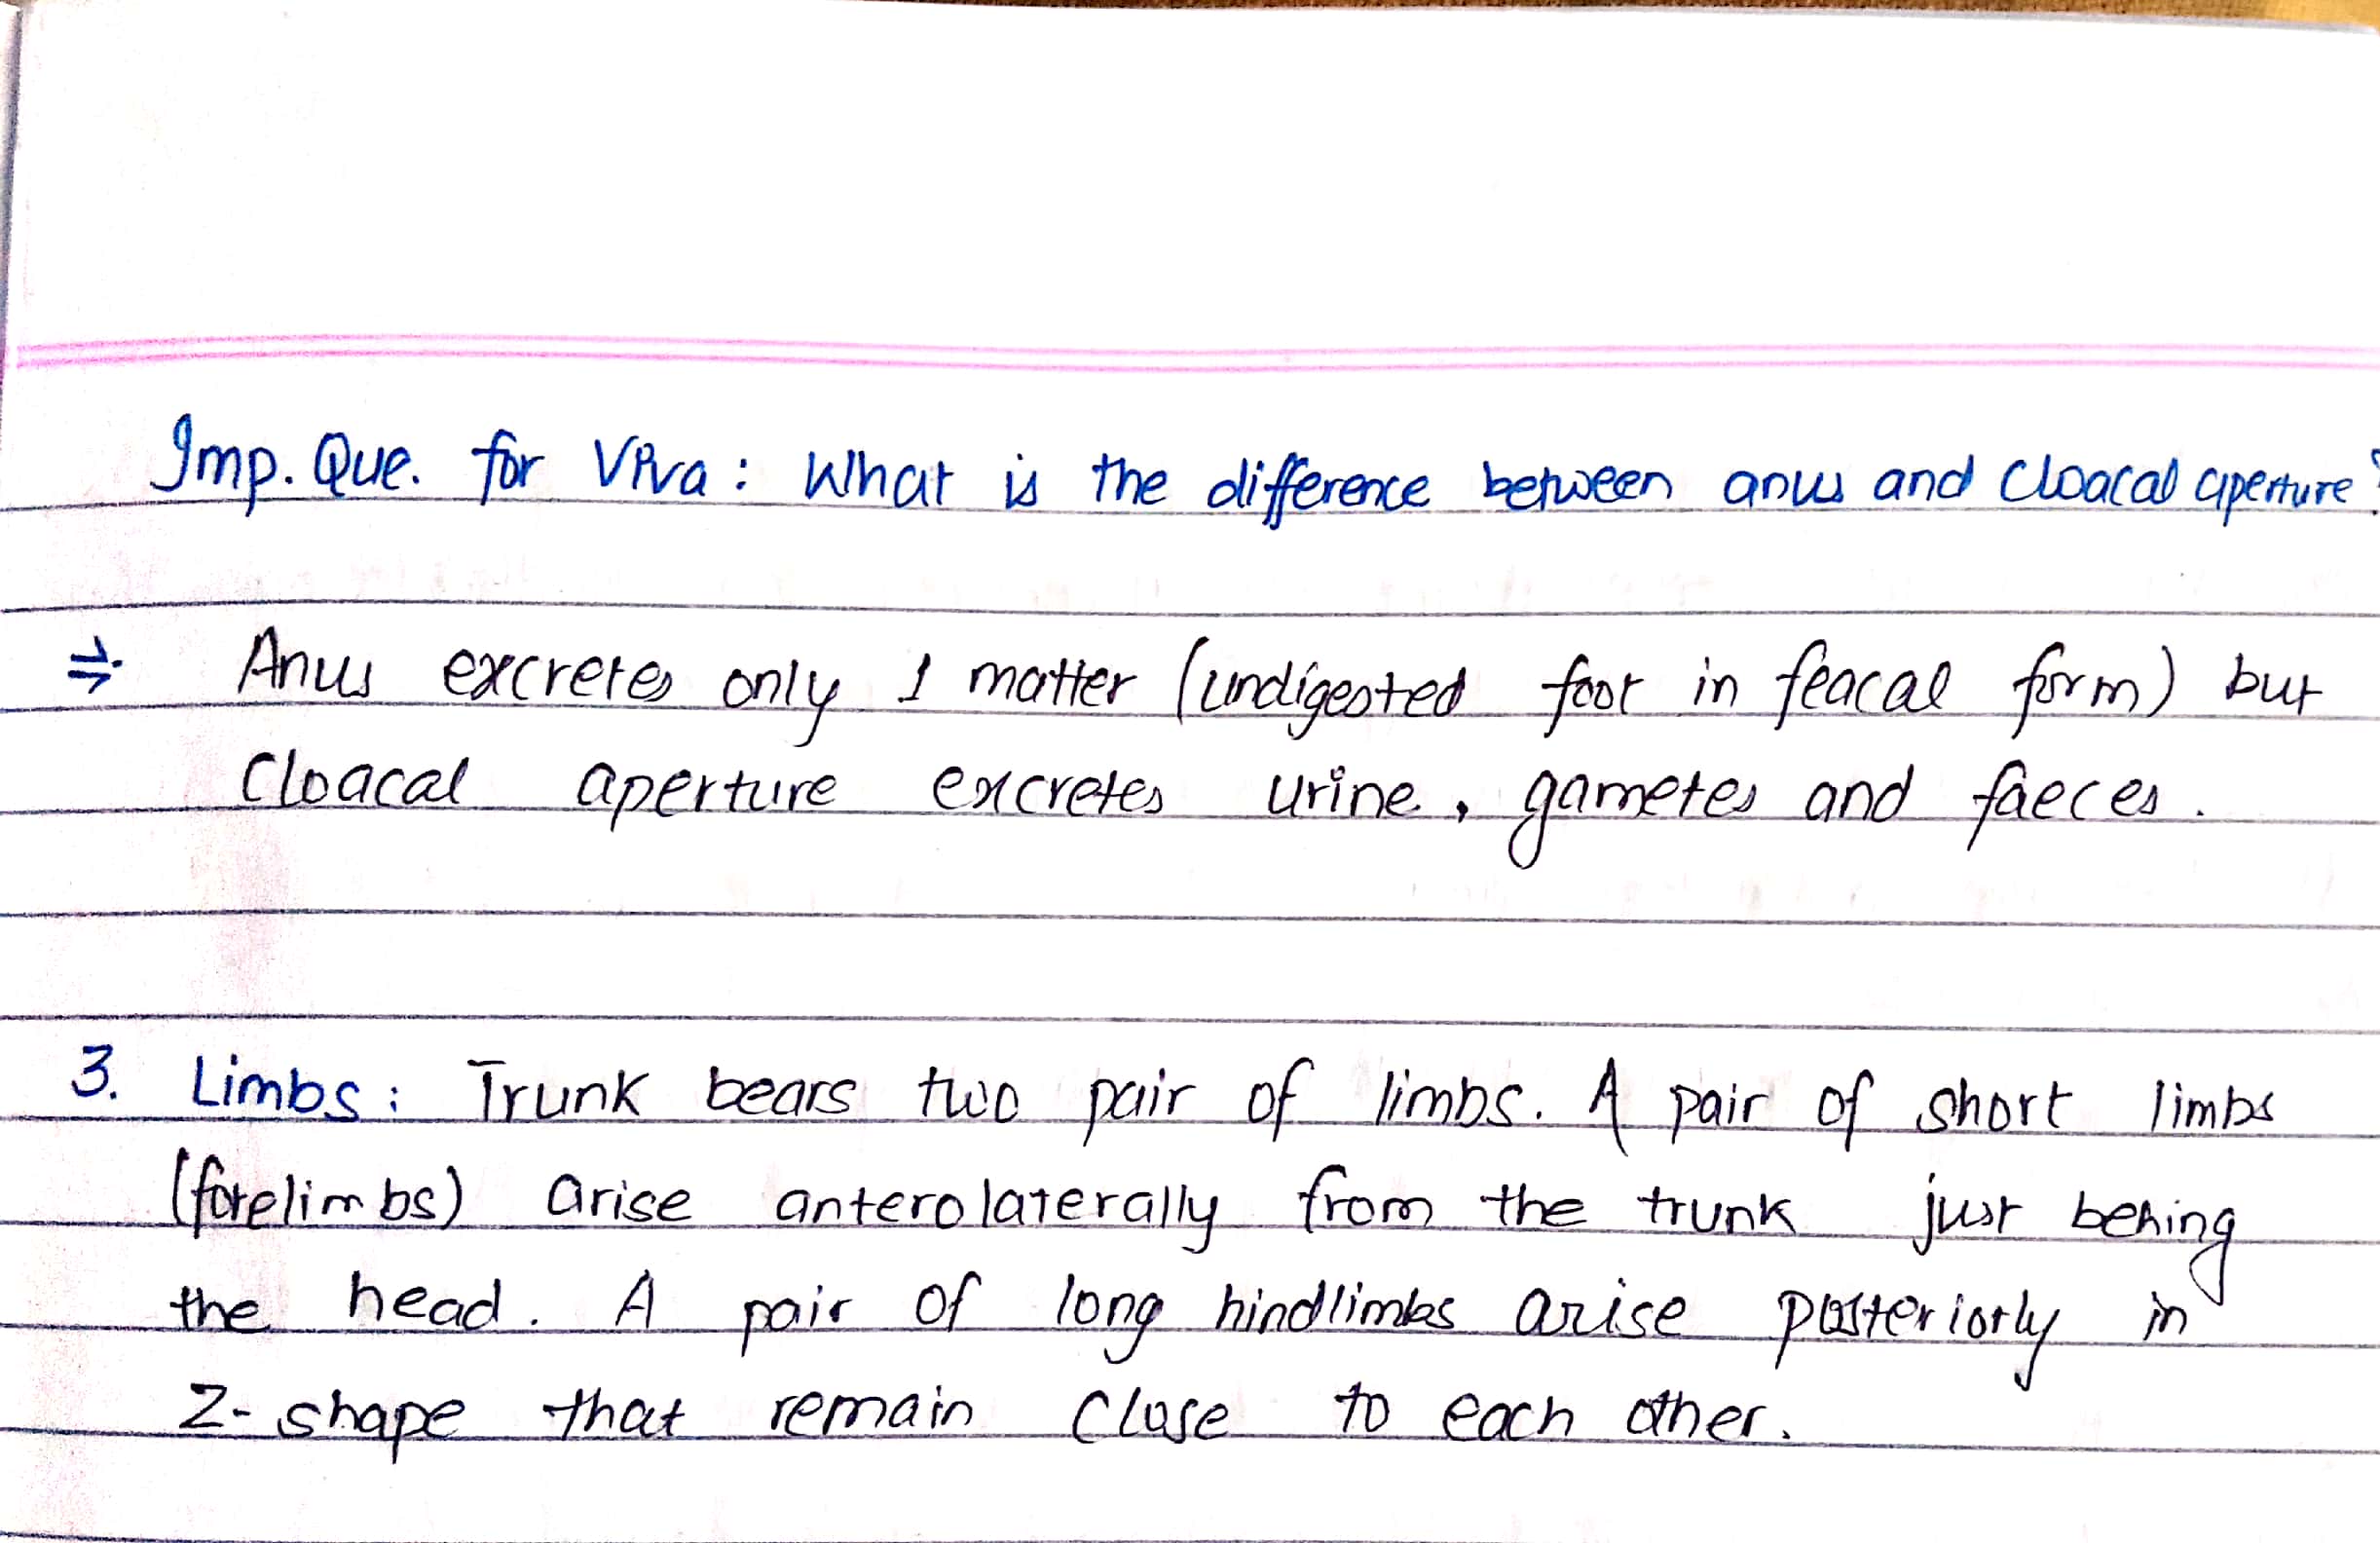 Imp. Que. for Viva : What is the difference between anus and Cloacal aperture?
⇒ Anus excretes only 1 matter (undigested foot in feacal form) but
Cloacal aperture excretes urine, gametes and faeces.
3. Limbs: Trunk bears two pair of limbs. A pair of short limbs
(forelimbs) arise anterolaterally from the trunk just behing
the head. A pair of long hindlimbs arise posteriorly in
Z-shape that remain close to each other.